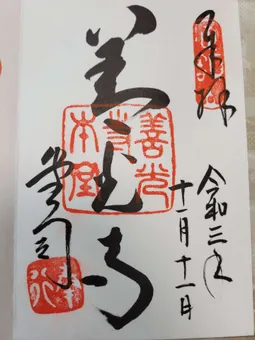 奉拝
令和三年
十一月十一日
善光寺
善光寺本堂
堂司